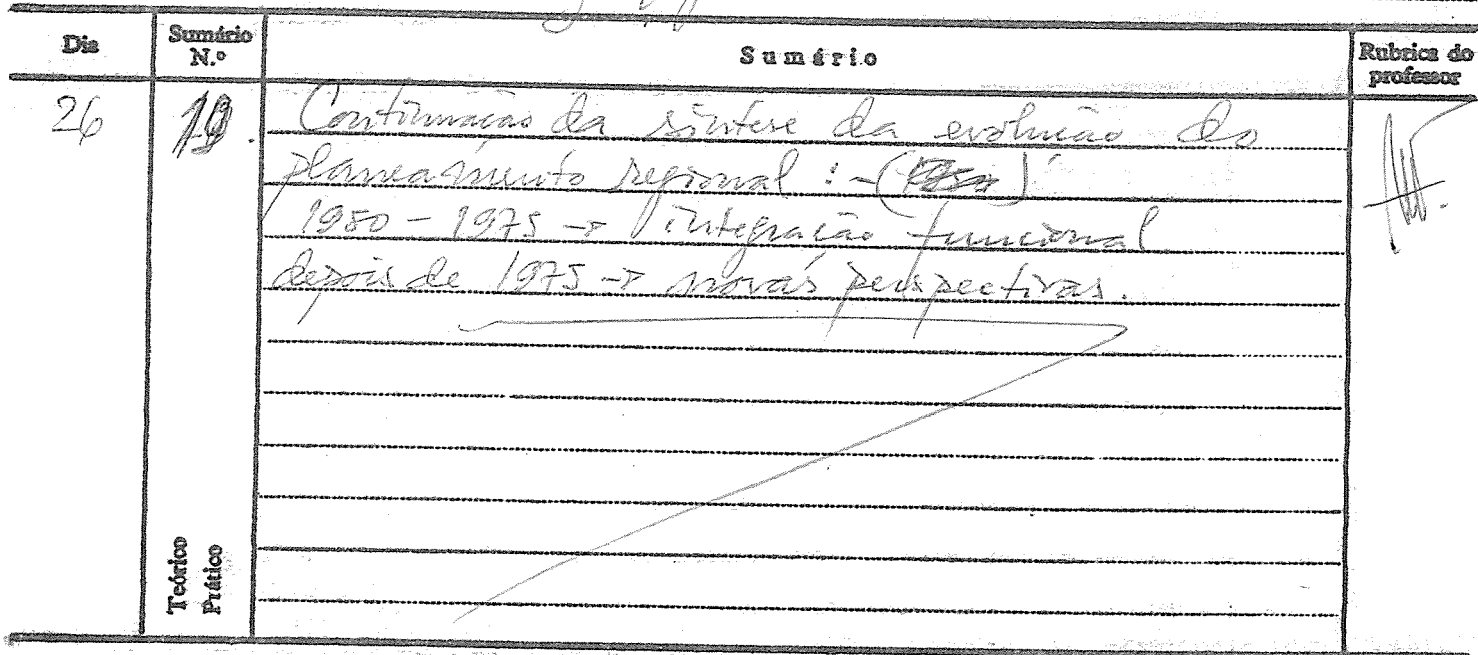 Dia
Sumário N.º
Sumário
Rubrica do professor
26
Continuação da síntese da evolução do
planeamento regional : - ( )
1950 - 1975 → integração funcional
depois de 1975 → novas perspectivas.
Teórico
Prático